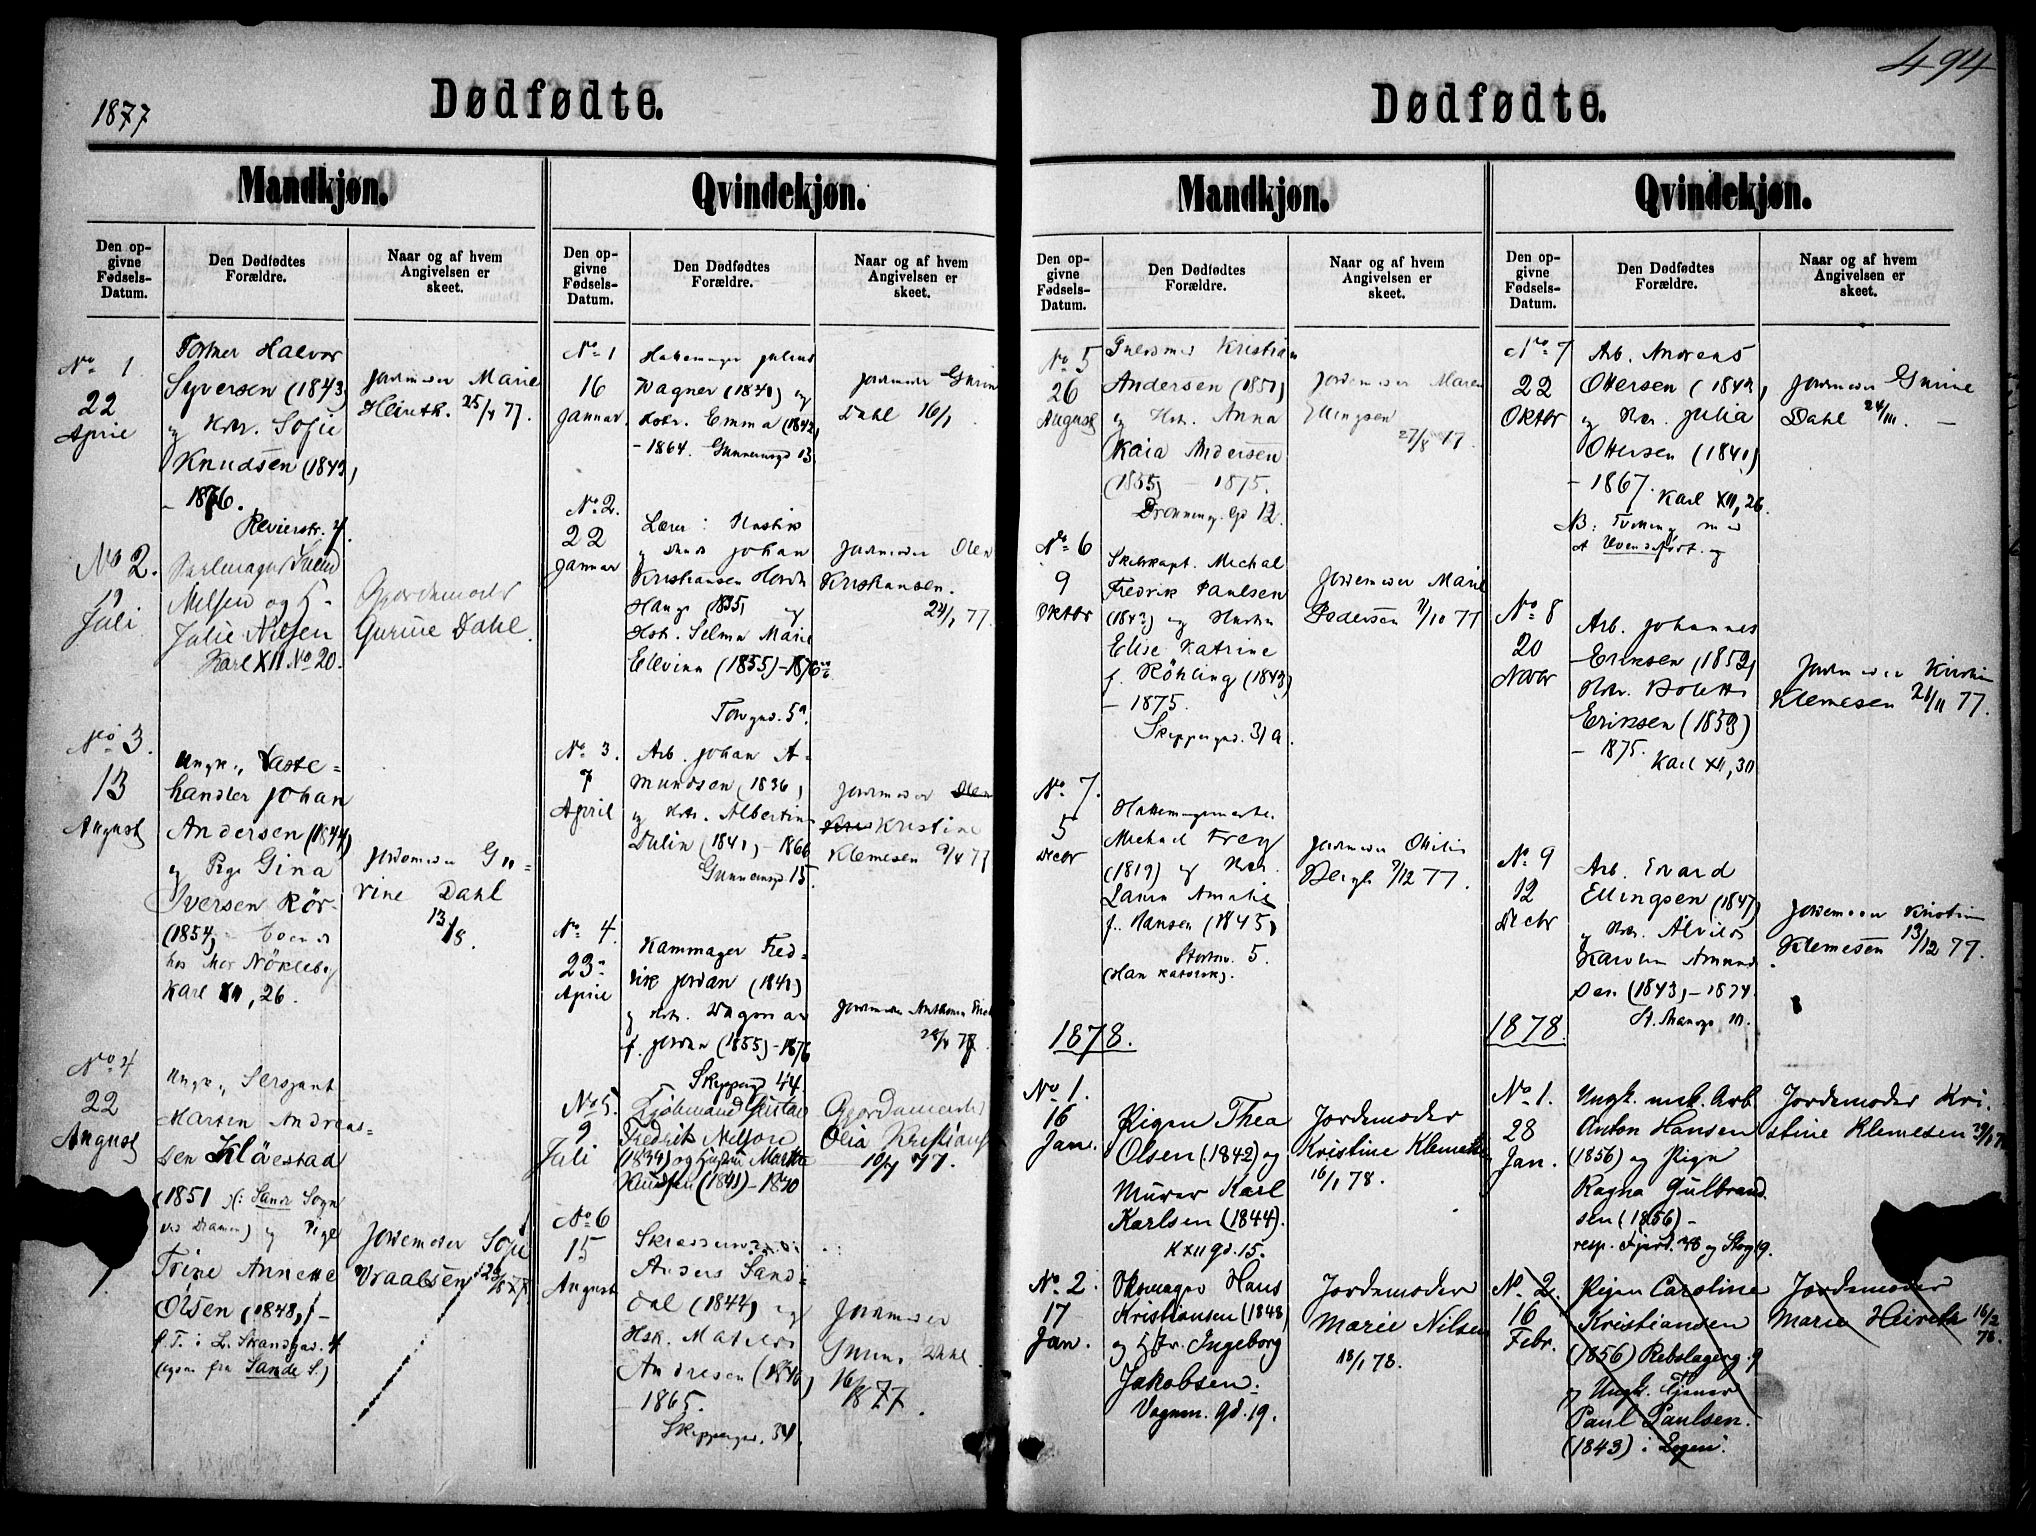 1877
Dødfødte.
Mandkjøn.
Den op-
givne
Fødsels-
Datum.
Den Dødfødtes
Forældre.
Naar og af hvem
Angivelsen er
skeet.
No 1
22
April
Halvor
Syversen (1843)
og Hstr. Sofie
Knudsen (1843)
- 1876.
Revierstr. 4.
Jordemoder Marie
Heireth. 25/4 77.
No 2.
19
Juli
Nilsen og H.
Julie Nilsen
Karl XII No 20.
Gjordemoder
Gurine Dahl.
No 3.
13
August
Ungk.,
handler Johan
Andersen (1844)
og Pige Gina
Iversen Rör-
(1854)
hos Mor Nökleby
Karl XII, 26.
Jordemoder Gu-
rine Dahl
13/8.
No 4
22
August
Ungk., Sersjant
Marten Andreas-
sen Klöestad
(1851) (: Sande Sogn
ved Drammen) og Pige
Trine Annette
Olsen (1848) -
p. T. i L. Skandgad. 4
(ogsaa fra Sande S.)
Jordemoder Sofie
Vraalsen 23/8 77.
Qvindekjøn.
Den op-
givne
Fødsels-
Datum.
Den Dødfødtes
Forældre.
Naar og af hvem
Angivelsen er
skeet.
No 1
16
Januar
Hattemager Julius
Wagner (1840) og
Hstr. Emma (1842)
- 1864. Gunnarsgd 13
Jordmoder Gurin
Dahl 16/1
No 2.
22
Januar
Lærer
Johan
Kristiansen
Hauge (1835) og
Hstr. Selma Marie
Ellevine (1855) - 1876
Torvgad. 5a.
Jordmoder Olea
Kristiansen.
24/1 77.
No 3.
7
April
Arb. Johan A-
mundsen (1836)
og Hstr. Albertine
Dulin (1841) - 1866
Gunnarsgd 15.
Jordmoder
Kristine
Klemesen 9/4 77
No 4.
23
April
Kammager Fred-
rik Jordan (1840)
og Hstr. Dagmar
f. Jordan (1855) - 1876
Skippergd 44.
Jordmoder
24/4 77.
No 5.
9
Juli
Fredrik Nilsen
(1834) og Hustru Marthe
Knudsen (1841) - 1870
Gjordemoder
Olia Kristians
10/7 77.
No 6
15
August
Anders Sand-
dal (1844) og
Hsk. Matilde
Andresen (1840)
- 1865.
Skippergad. 34.
Jordmoder
Gurine Dahl.
16/8 77.
494
Dødfødte.
Mandkjøn.
Den op-
givne
Fødsels-
Datum.
Den Dødfødtes
Forældre.
Naar og af hvem
Angivelsen er
skeet.
No 5
26
August
Guldsmed Kristian
Andersen (1851)
og Hstr. Anna
Kaia Andersen
(1855) - 1875.
Dronning. Gd 12.
Jordemoder Maren
Ellingsen
27/8 77.
No 6
9
Oktbr
Skibskapt. Michal
Fredrik Paulsen
(1842) og Hustru
Elise Katrine
f. Röhling (1843)
- 1875.
Skippergad. 31a.
Jordemoder Marie
Pedersen 11/10 77
No 7.
5
Decbr
Hattemagermester
Michael Frey
(1819) og Hstr.
Laura Amalie
f. Hansen (1845)
Storstr. 5.
(Han katolsk).
Jordmoder Otilie
Bergh 7/12 77.
1878.
No 1.
16
Jan.
Pigen Thea
Olsen (1842) og
Murer Karl
Karlsen (1844).
K XII gd. 15.
Jordemoder
Kristine Klemetsen
16/1 78.
No 2.
17
Jan.
Hans
Kristiansen (1848)
og Hstr. Ingeborg
Jakobsen.
Vognm. gd. 19.
Jordemoder
Marie Nilsen
18/1 78.
Qvindekjøn.
Den op-
givne
Fødsels-
Datum.
Den Dødfødtes
Forældre.
Naar og af hvem
Angivelsen er
skeet.
No 7
22
Oktbr
Arb. Andreas
Ottersen (1842)
og Hstr. Julia
Ottersen (1841)
- 1867. Karl XII, 26.
NB: Tvilling med
et levendefødt. og
Jordmoder Gurine
Dahl 24/11.
No 8
20
Novbr
Arb. Johannes
Eriksen (1852)
Hstr. Bolette
Eriksen (1853)
- 1875. Karl XII, 30
Jordmoder Kristin
Klemesen 21/11 77.
No 9
12
Decbr
Arb. Evard
Ellingsen (1847)
og Hstr. Alvilde
Karoline Amund-
sen (1843) - 1874.
St. Mariegd 10.
Jordemoder Kristin
Klemesen 13/12 77.
1878.
No 1.
28
Jan.
Ungk. mek. Arb.
Anton Hansen
(1856) og Pigen
Ragna Gulbrand-
sen (1856) -
resp. Fjerd. 38 og Storg 9.
Jordemoder Kri-
stine Klemesen 29/1 78
No 2.
16
Febr.
Pigen Caroline
Kristiansen
(1856) Rebslagerg. 9
og Ungk. Tjener
Paul Paulsen.
(1843) i Logen.
Jordemoder
Marie Heireth 16/2
78.